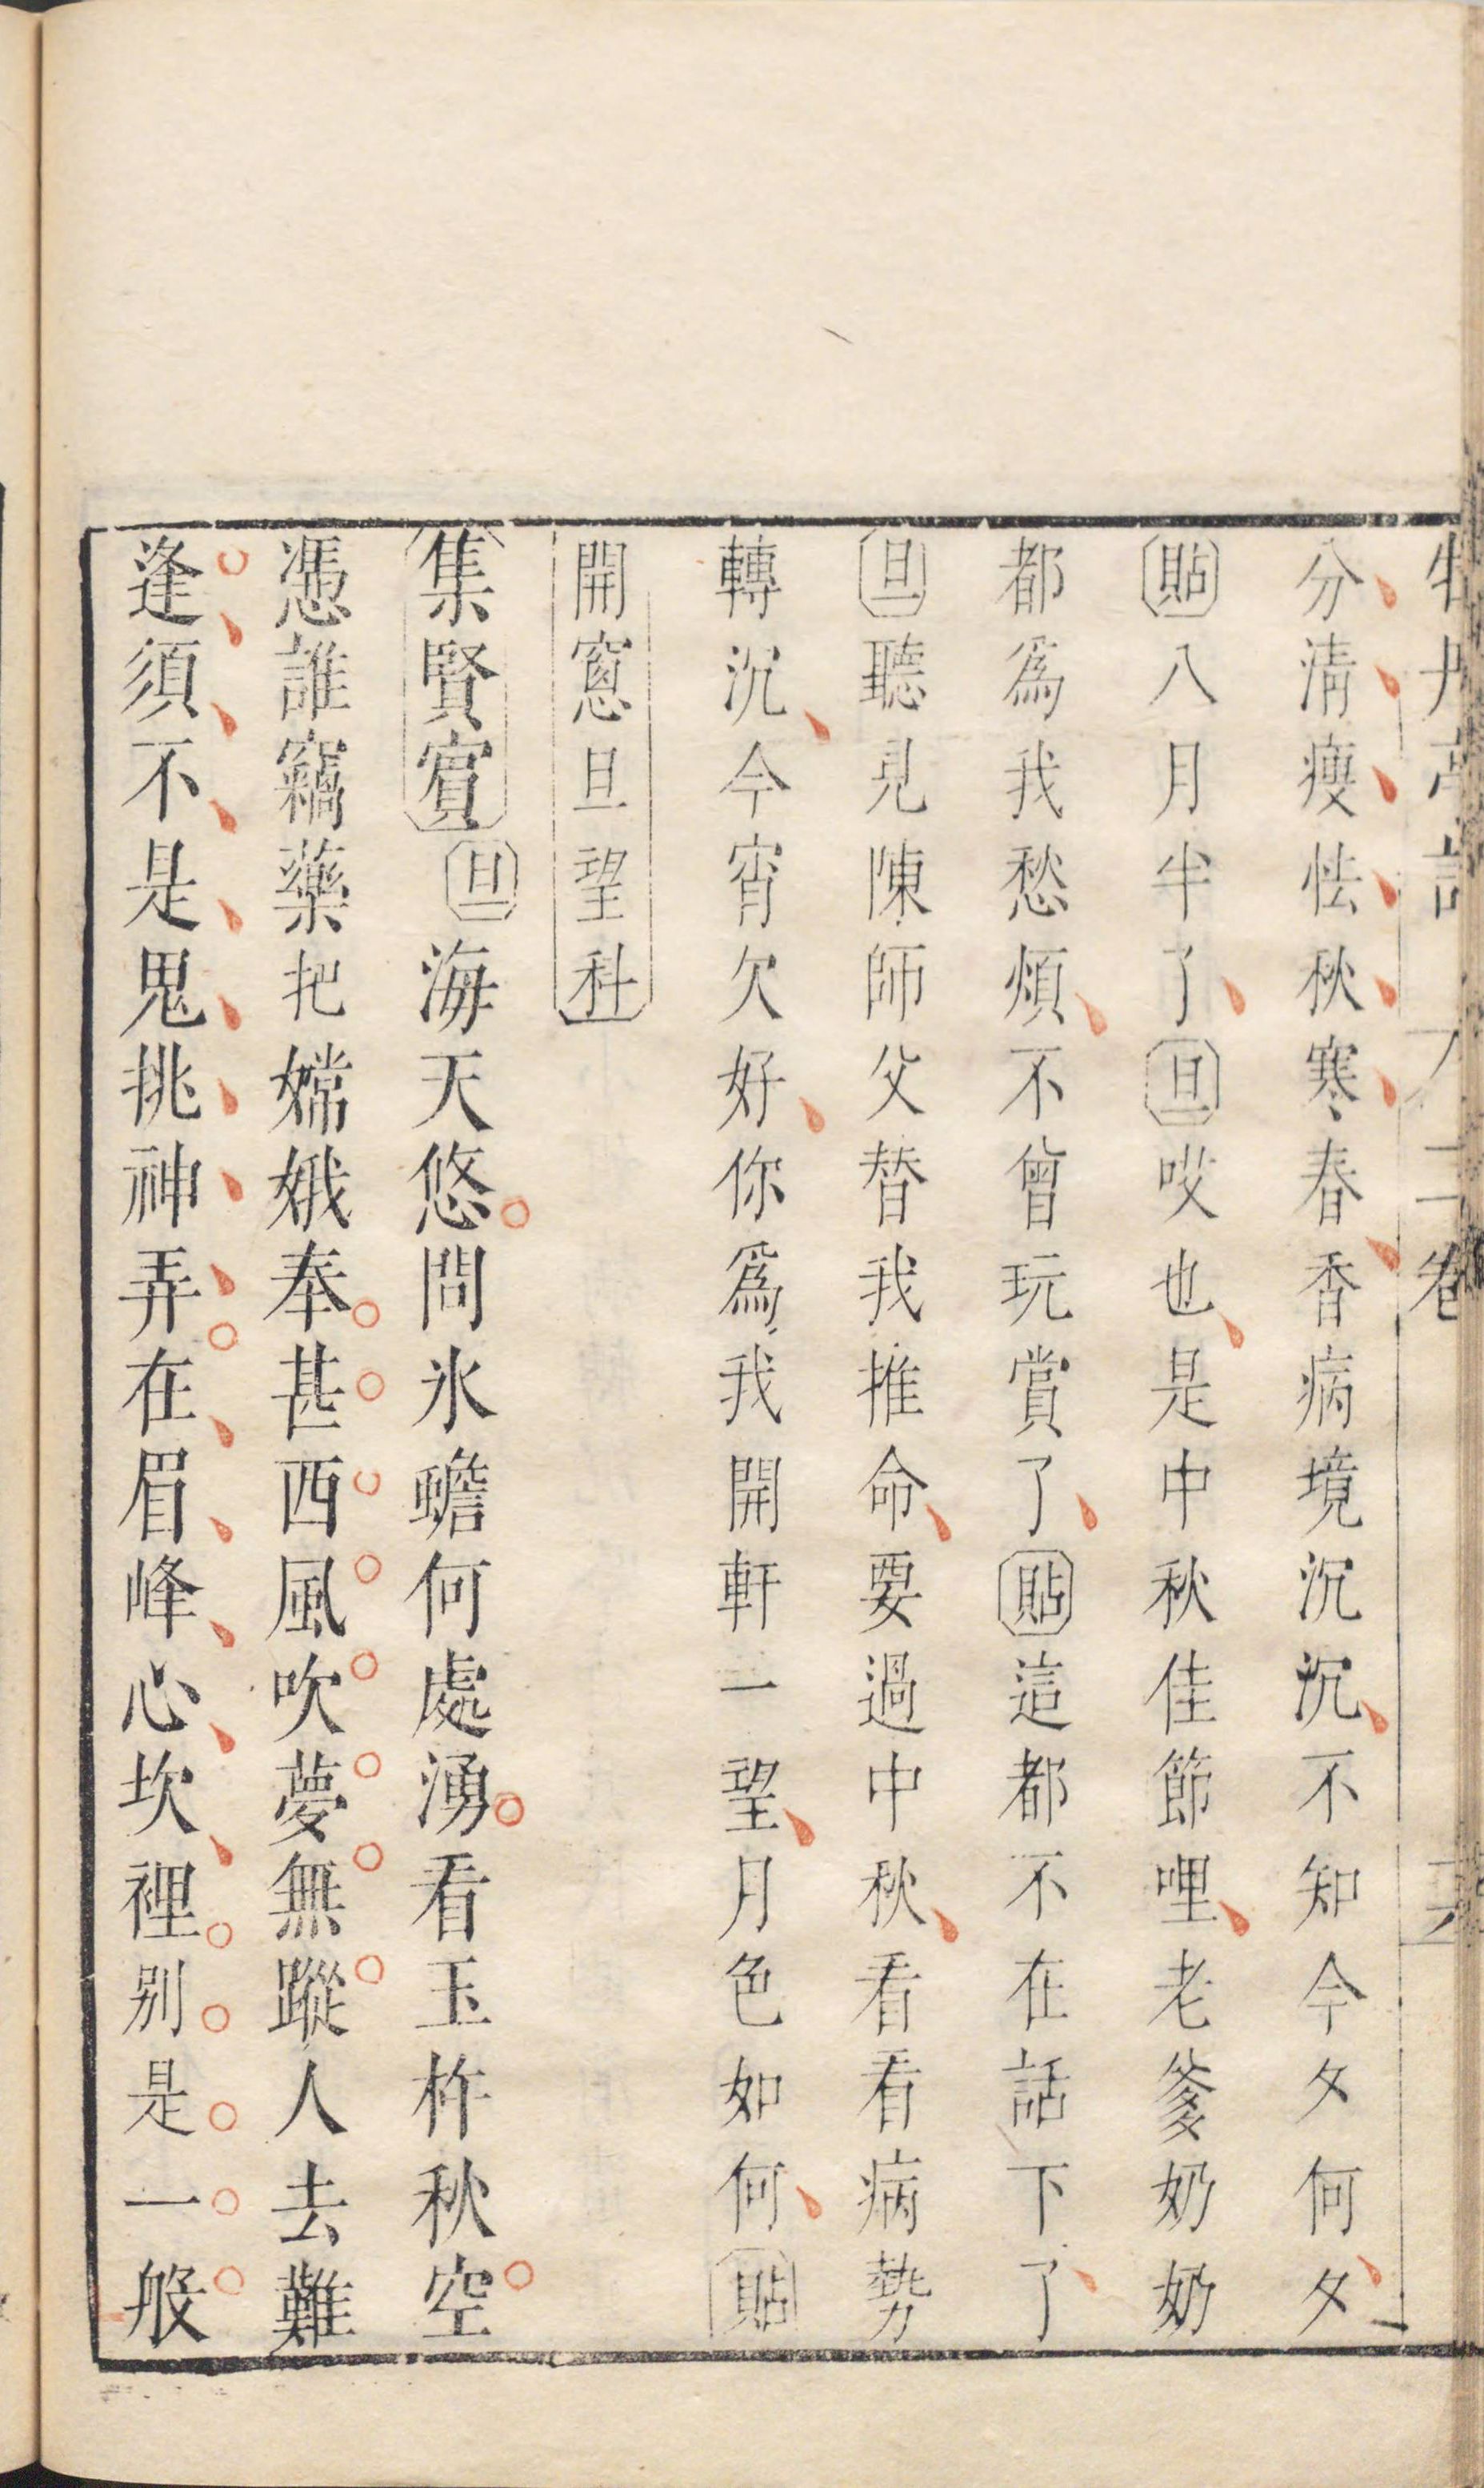 分清瘦怯秋寒春香病境沉沉不知今夕何夕
貼八月半了旦哎也是中秋佳節哩老爹奶奶
都為我愁煩不曾玩賞了貼這都不在話下了
旦聽見陳師父替我推命要過中秋看看病勢
轉沉今宵欠好你為我開軒一望月色如何貼
開窻旦望科
集賢賔旦海天悠問氷蟾何處湧看玉杵秋空
憑誰竊藥把嫦娥奉甚西風吹夢無蹤人去難
逢須不是鬼挑神弄在眉峰心坎裡别是一般